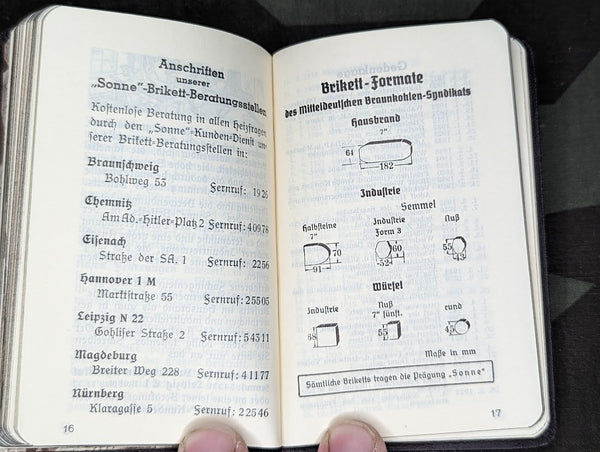 Anschriften
unserer
„Sonne“-Brikett-Beratungsstellen
Kostenlose Beratung in allen Heizfragen
durch den „Sonne“-Kunden-Dienst un-
serer Brikett-Beratungsstellen in:
Braunschweig
Bohlweg 53 Fernruf: 1926
Chemnitz
Am Ad.-Hitler-Platz 2 Fernruf: 40978
Eisenach
Straße der SA. 1 Fernruf: 2256
Hannover 1 M
Marktstraße 55 Fernruf: 25505
Leipzig N 22
Gohliser Straße 2 Fernruf: 54311
Magdeburg
Breiter Weg 228 Fernruf: 41177
Nürnberg
Klaragasse 5 Fernruf: 22546
16
Brikett-Formate
des Mitteldeutschen Braunkohlen-Syndikats
Hausbrand
7"
64
182
Industrie
Semmel
Halbsteine
7"
Industrie
Form 3
Nuß
70
91
60
52
55
43
Würfel
Industrie
Nuß
7" fünft.
rund
68
55
45
Maße in mm
Sämtliche Briketts tragen die Prägung „Sonne“
17